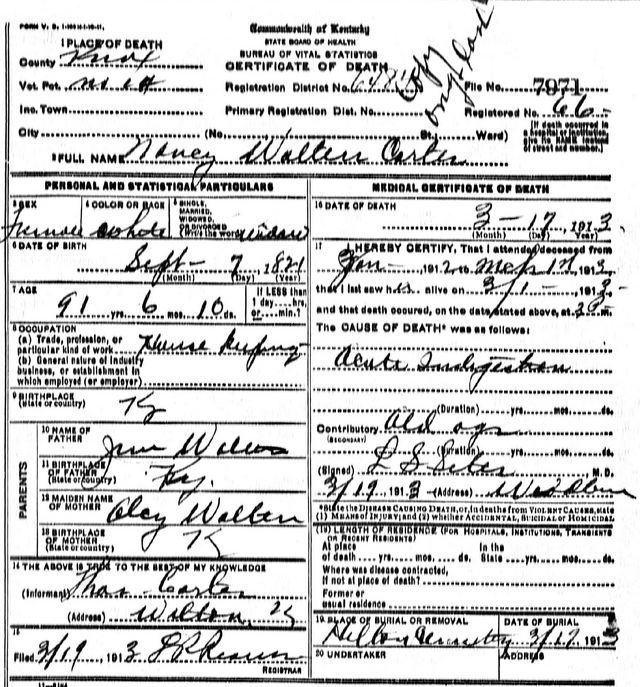 FORM V. S. 1
Commonwealth of Kentucky
STATE BOARD OF HEALTH
BUREAU OF VITAL STATISTICS
CERTIFICATE OF DEATH
1 PLACE OF DEATH
County Knox
Vot. Pct.
Inc. Town
City (No. St., Ward)
Copy
Registration District No.
File No. 7971
Primary Registration Dist. No.
Registered No. 66-
[If death occurred in a hospital or institution, give its NAME instead of street and number.]
2 FULL NAME Nancy Walten Carter
PERSONAL AND STATISTICAL PARTICULARS
3 SEX 4 COLOR OR RACE 5 SINGLE, MARRIED, WIDOWED, OR DIVORCED (Write the word)
Female White
6 DATE OF BIRTH
Sept- 7, 1821
(Month) (Day) (Year)
7 AGE
91 yrs. 6 mos. 10 ds.
If LESS than 1 day....hrs. or....min.?
8 OCCUPATION
(a) Trade, profession, or particular kind of work House Keeping
(b) General nature of industry business, or establishment in which employed (or employer)
9 BIRTHPLACE
(State or country) Ky
PARENTS
10 NAME OF FATHER
11 BIRTHPLACE OF FATHER
(State or country) Ky.
12 MAIDEN NAME OF MOTHER Walten
13 BIRTHPLACE OF MOTHER
(State or country) K
14 THE ABOVE IS TRUE TO THE BEST OF MY KNOWLEDGE
(Informant) Thos Carter
(Address) Wilton, Ky
15
Filed 3/19, 1913
REGISTRAR
MEDICAL CERTIFICATE OF DEATH
16 DATE OF DEATH
3-17, 1913
(Month) (Day) (Year)
17 I HEREBY CERTIFY, That I attended deceased from
Jan-, 191 to Mch 17, 1913,
that I last saw h alive on 3/1-, 1913-
and that death occured, on the date stated above, at m.
The CAUSE OF DEATH* was as follows:
Acute Indigestion
(Duration) yrs. mos. ds.
Contributory Old age
(SECONDARY)
(Duration) yrs. mos. ds.
(Signed) M.D.
3/19, 1913 (Address)
*State the DISEASE CAUSING DEATH, or, in deaths from VIOLENT CAUSES, state (1) MEANS OF INJURY; and (2) whether ACCIDENTAL, SUICIDAL or HOMICIDAL
(18) LENGTH OF RESIDENCE (FOR HOSPITALS, INSTITUTIONS, TRANSIENTS OR RECENT RESIDENTS)
At place of death yrs. mos. ds. In the State yrs. mos. ds.
Where was disease contracted, if not at place of death?
Former or usual residence
19 PLACE OF BURIAL OR REMOVAL DATE OF BURIAL
3/17, 1913
20 UNDERTAKER ADDRESS